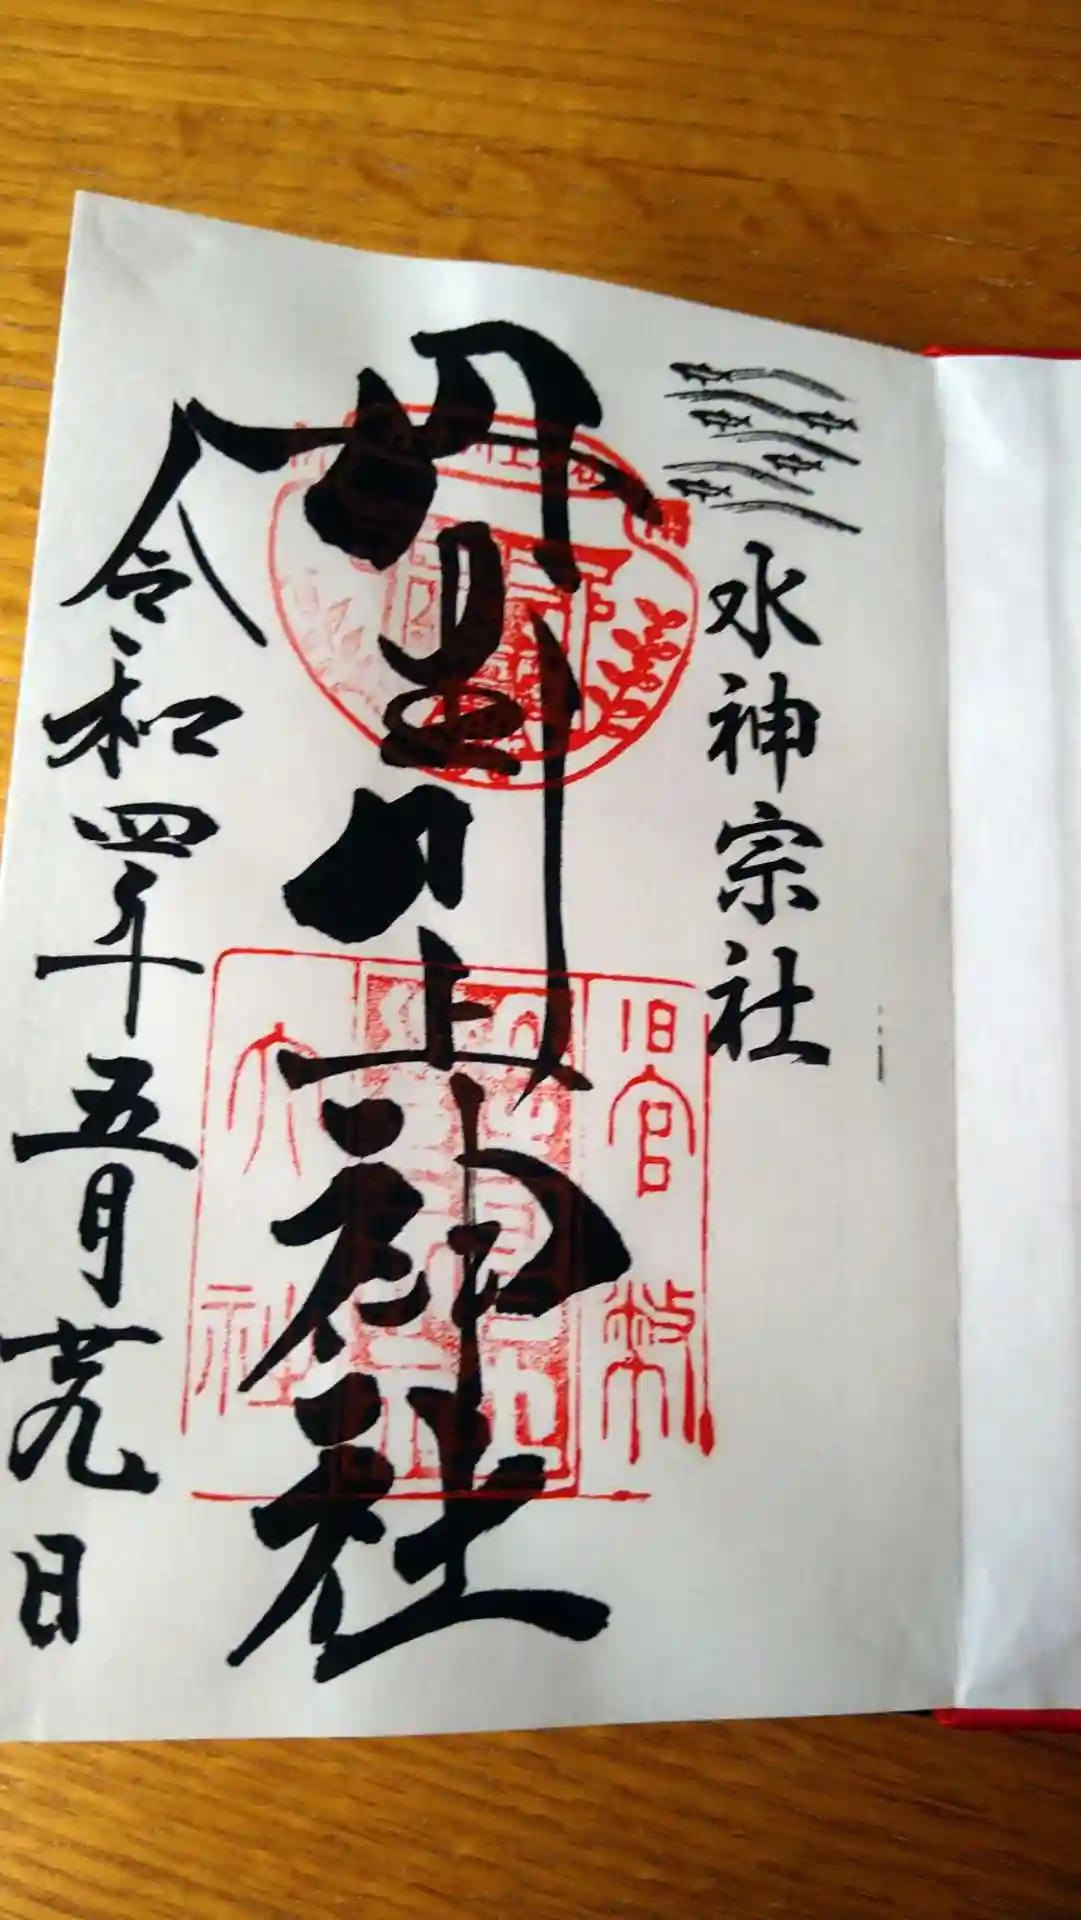 水神宗社
丹生川上神社
令和四年五月廿九日
旧官幣
大社